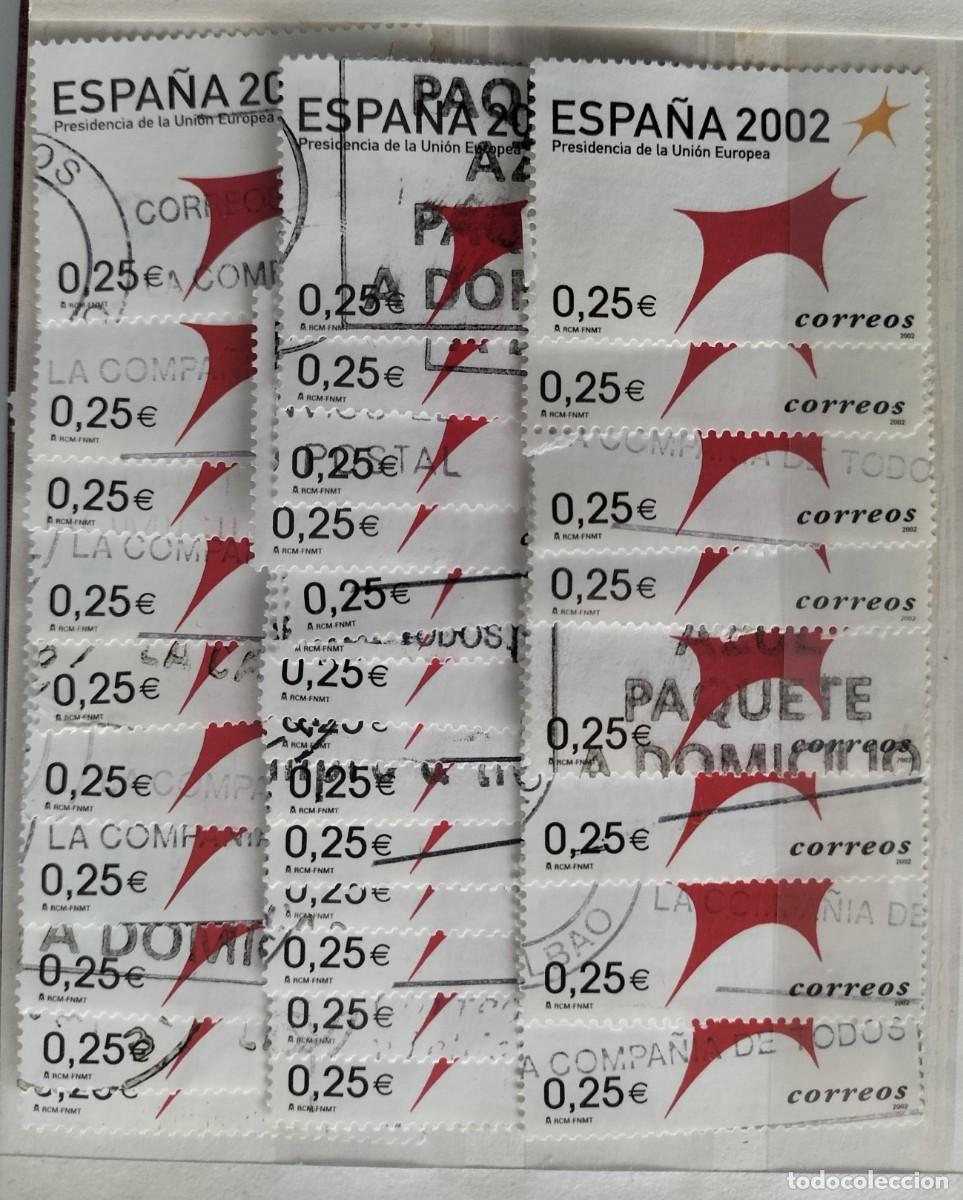 ESPAÑA 20
Presidencia de la Unión Europea
OS
CORREOS
0,25€
RCM-FNMT
LA COMPAÑ
0,25€
RCM-FNMT
0,25€
RCM-FNMT
LA COMPA
0,25€
RCM-FNMT
LA CA
0,25€
RCM-FNMT
0,25€
RCM-FNMT
LA COMPAÑIA
0,25€
RCM-FNMT
A DOMI
0,25€
RCM-FNMT
0,25€
RCM-FNMT
RCM-FNMT
PAQU
ESPAÑA 20
Presidencia de la Unión Europea
AZ
PA
A DOM
0,25€
RCM-FNM
0,25€
RCM-FNMT
POSTAL
0,25€
RCM-FNMT
0,25€
RCM-FNMT
0,25€
TODOS
0,25€
RCM-FNMT
RCM-FNMT
0,25€
RCM-FNMT
0,25€
RCM-FNMT
0,25€
RCM-FNMT
0,25€
RCM-FNMT
0,25€
RCM-FNMT
0,25€
RCM-FNMT
ESPAÑA 2002
Presidencia de la Unión Europea
0,25€
RCM-FNMT
correos
2002
0,25€
RCM-FNMT
correos
2002
LA COMPAÑIA DE TODO
0,25€
RCM-FNMT
correos
2002
0,25€
RCM-FNMT
correos
2002
AZUL
PAQUETE
A DOMICILIO
0,25€
RCM-FNMT
correos
2002
0,25€
RCM-FNMT
correos
2002
LA COMPAÑIA DE
LBAO
0,25€
RCM-FNMT
correos
2002
A COMPAÑIA DE TODOS
0,25€
RCM-FNMT
correos
2002
todocoleccion